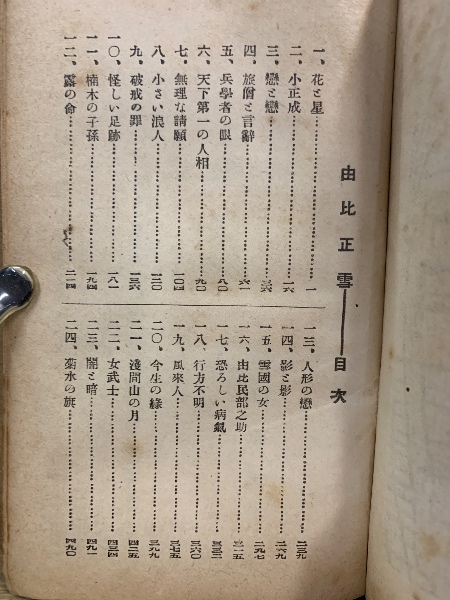 由比正雪——目次
一、花と星……一
二、小正成……一六
三、戀と戀……三六
四、旅僧と言辭……六一
五、兵學者の眼……八〇
六、天下第一の人相……九〇
七、無理な請願……一〇四
八、小さい浪人……一二〇
九、破戒の罪……一三六
一〇、怪しい足跡……一八一
一一、楠木の子孫……一九四
一二、露の命……二一四
一三、人形の戀……二三九
一四、影と影……二六九
一五、雪國の女……二九七
一六、由比民部之助……三一五
一七、恐ろしい病氣……三三二
一八、行方不明……三六〇
一九、風來人……三七五
二〇、今生の緣……三九九
二一、淺間山の月……四二五
二二、女武士……四三四
二三、闇と暗……四九一
二四、菊水の旗……四九〇